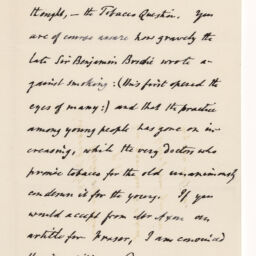 thought, — the Tobacco Question. You
are of course aware how gravely the
late Sir Benjamin Brodie wrote a-
gainst smoking: (this first opened the
eyes of many:) and that the practice
among young people has gone on in-
creasing, while the very doctors who
promise tobacco for the old unanimously
condemn it for the young. If you
would accept from Mr Axon an
article for Fraser, I am convinced